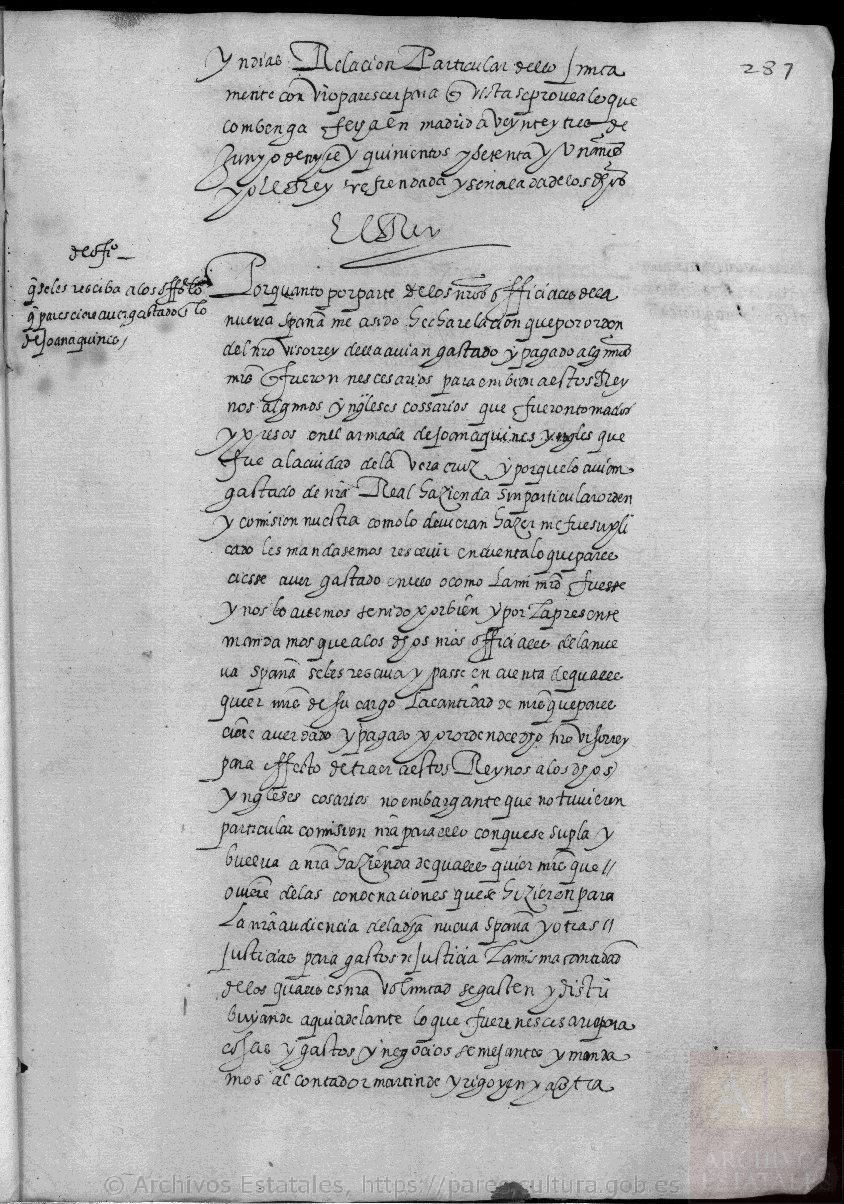 287
Yndias Relacion Particular dello Junta
mente con vro parescer para q vista se provea lo que
combenga fecha en madrid a veynte y tres de
Junyo de myll y quinientos y setenta y un años
yo el Rey refrendada y señalada de los dhos
El Rey
de offio
q se les resciba a los offes lo
q paresciere aver gastado en lo
de Joan aquines
Por quanto por parte de los nros officiales de la
nueva spaña me a sido hecha relacion que por orden
del nro visorrey della avian gastado y pagado algunos
mrs q fueron nescesarios para embiar a estos Rey
nos algunos yngleses cossarios que fueron tomados
y presos en el armada de Joan aquines yngles que
fue a la ciudad de la vera cruz y porque lo avian
gastado de nra Real hazienda sin particular orden
y comision nuestra como lo devieran hazer me fue supli
cado les mandasemos rescevir en cuenta lo que pares
ciesse aver gastado en ello o como la mi mrd fuesse
y nos lo avemos tenido por bien y por la presente
mandamos que a los dhos nros officiales de la nue
va spaña se les resciva y passe en cuenta de quales
quier mrs de su cargo la cantidad de mrs que pares
ciere aver dado y pagado por orden del dho nro visorrey
para effecto de traer a estos Reynos a los dhos
yngleses cosarios no embargante que no tuvieren
particular comision nra para ello con que se supla y
buelva a nra hazienda de quales quier mrs que
oviere de las condenaciones que se hizieren para
la nra audiencia de la dha nueva spaña y otras
Justicias para gastos de Justicia la misma cantidad
de los quales es nra voluntad se gasten y distri
buyan de aqui adelante lo que fuere nescesario para
estos y gastos y negocios semejantes y manda
mos al contador martin de yrigoyen y a otra
© Archivos Estatales, https://pares.cultura.gob.es
ARCHIVOS
ESTATALES